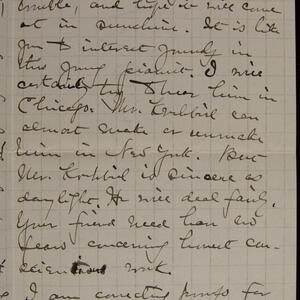 trouble, and hope it will come
out in sunshine. It is like
you to interest yourself in
this young pianist. I will
certainly try to hear him in
Chicago. Mr. Krehbiel can
almost make or unmake
him in New York. But
Mr. Krehbiel is sincere as
daylight. He will deal fairly.
Your friend need have no
fears concerning honest con-
scientious work.
I am correcting proofs for